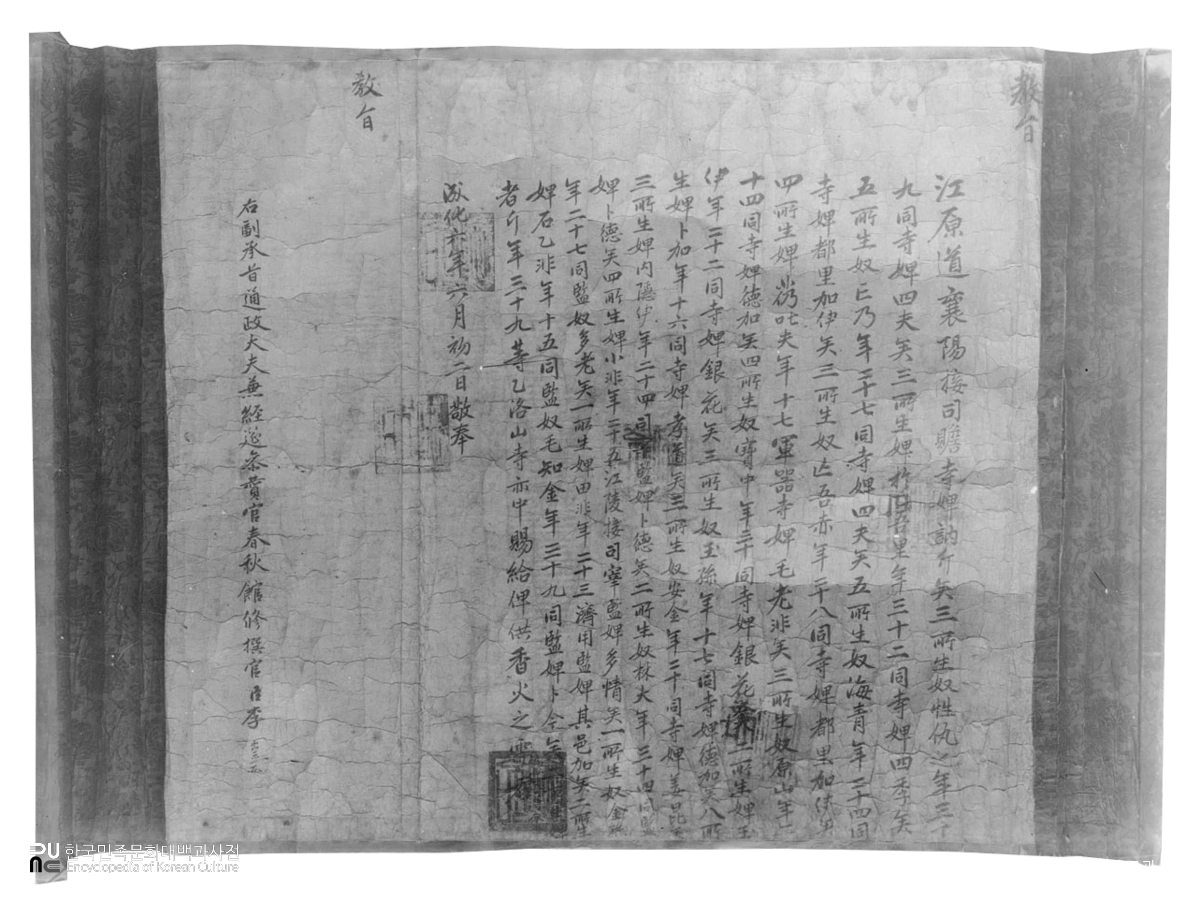 教旨
江原道襄陽接司贍寺婢訥斤矣三所生奴性仇之年三十
九同寺婢四夫矣三所生婢於吾里年三十二同寺婢四季矣
五所生奴亡乃年二十七同寺婢四夫矣五所生奴海青年二十四同
寺婢都里加伊矣三所生奴亡吾赤年二十八同寺婢都里加伊矣
四所生婢 叱夫年十七軍器寺婢毛老非矣三所生奴原山年二
十四同寺婢德加矣四所生奴寶中年三十同寺婢銀花矣二所生婢玉
伊年二十二同寺婢銀花矣三所生奴玉孫年十七同寺婢德加矣八所
生婢卜加年十六同寺婢孝道矣三所生奴安金年二十同寺婢姜昆矣
三所生婢內隱伊年二十四司宰監婢卜德矣二所生奴林大年三十四同監
婢卜德矣四所生婢小非年二十五江陵接司宰監婢多情矣一所生奴金
年二十七同監奴多老矣一所生婢田非年二十三濟用監婢其邑加矣二所生
婢石乙非年十五同監奴毛知金年三十九同監婢卜今年
者斤年三十九等乙洛山寺亦中賜給俾供香火之
成化六年六月初二日敬奉
教旨
右副承旨通政大夫兼經筵參贊官春秋館修撰官臣李
한국민족문화대백과사전
Encyclopedia of Korean Culture